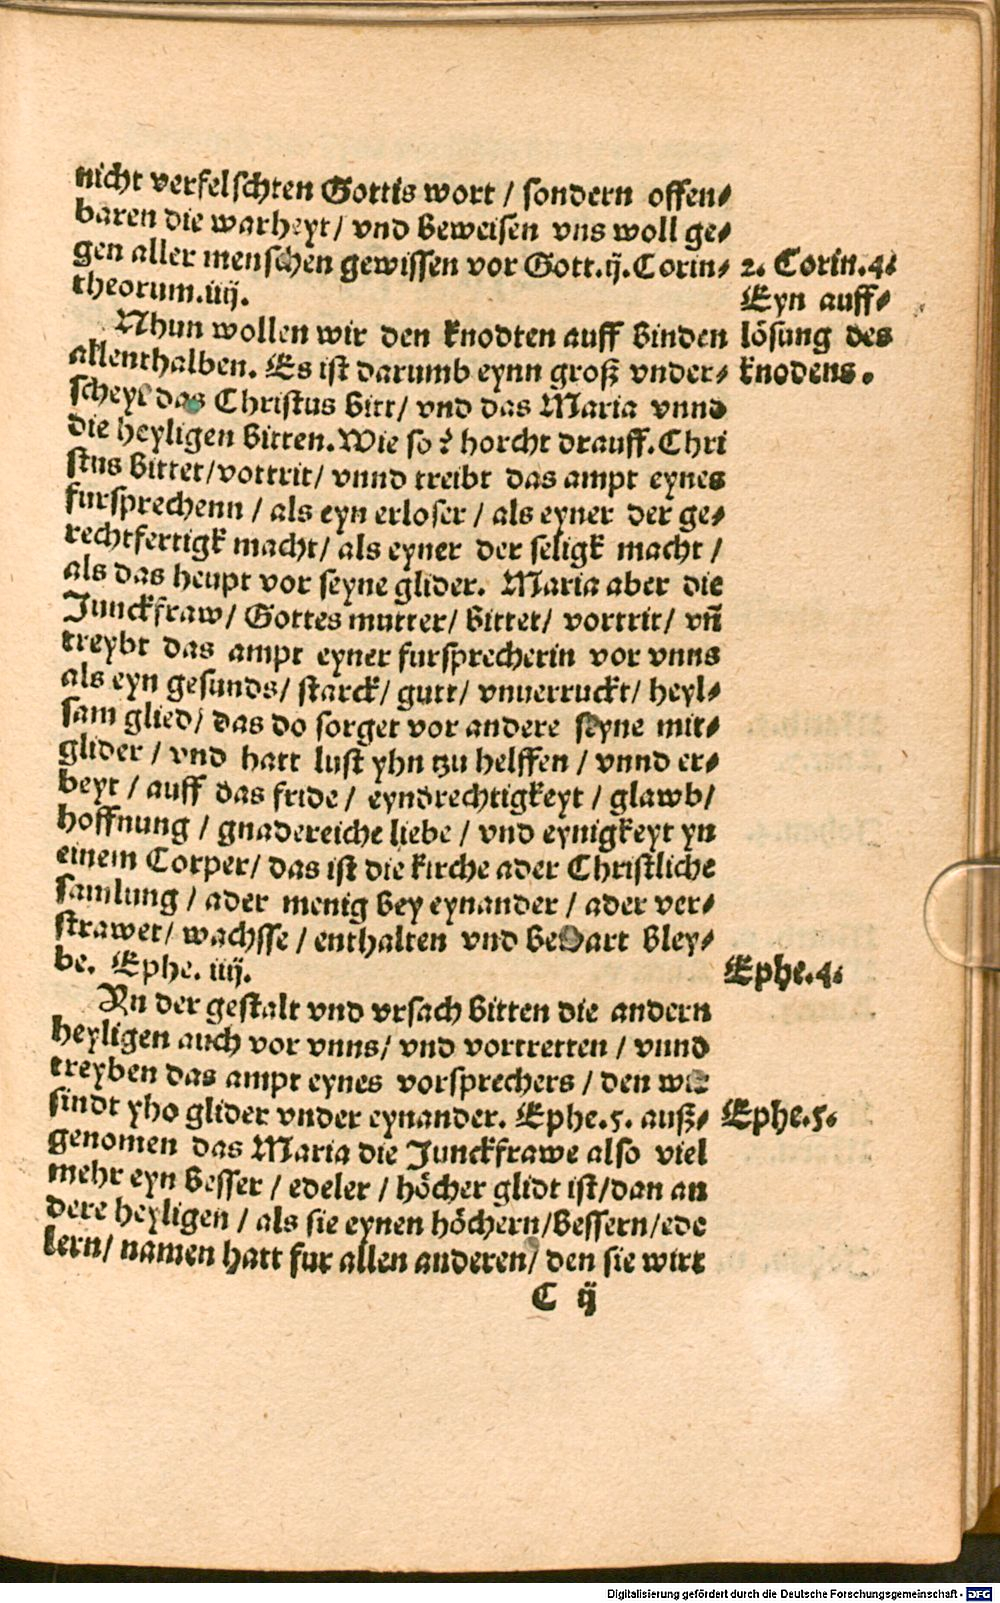 nicht verfelschten Gottis wort / sondern offen⸗
baren die warheyt / vnd beweisen vns woll ge⸗
gen aller menschen gewissen vor Gott.ij.Corin⸗
theorum.iiij.
2. Corin.4.
Eyn auff⸗
lösung des
knodens.
Nhun wollen wir den knodten auff binden
allenthalben. Es ist darumb eynn groß vnder⸗
scheyt das Christus bitt / vnd das Maria vnnd
die heyligen bitten. Wie so? horcht drauff. Chri
stus bittet / vortrit / vnnd treibt das ampt eynes
fursprechenn / als eyn erloser / als eyner der ge⸗
rechtfertigk macht / als eyner der seligk macht /
als das heupt vor seyne glider. Maria aber die
Junckfraw / Gottes mutter / bittet / vortrit / vn̄
treybt das ampt eyner fursprecherin vor vnns
als eyn gesunds / starck / gutt / vnuerruckt / heyl⸗
sam glied / das do sorget vor andere seyne mit⸗
glider / vnd hatt lust yhn tzu helffen / vnnd er⸗
beyt / auff das fride / eyndrechtigkeyt / glawb /
hoffnung / gnadereiche liebe / vnd eynigkeyt yn
einem Corper / das ist die kirche ader Christliche
samlung / ader menig bey eynander / ader ver⸗
strawet / wachsse / enthalten vnd bewart bley⸗
be. Ephe. iiij.
Ephe.4.
Yn der gestalt vnd vrsach bitten die andern
heyligen auch vor vnns / vnd vortretten / vnnd
treyben das ampt eynes vorsprechers / den wir
sindt yho glider vnder eynander. Ephe.5. auß⸗
Ephe.5.
genomen das Maria die Junckfrawe also viel
mehr eyn besser / edeler / höcher glidt ist / dan an
dere heyligen / als sie eynen höchern / bessern / ede
lern / namen hatt fur allen anderen / den sie wirt
C ij
Digitalisierung gefördert durch die Deutsche Forschungsgemeinschaft - DFG